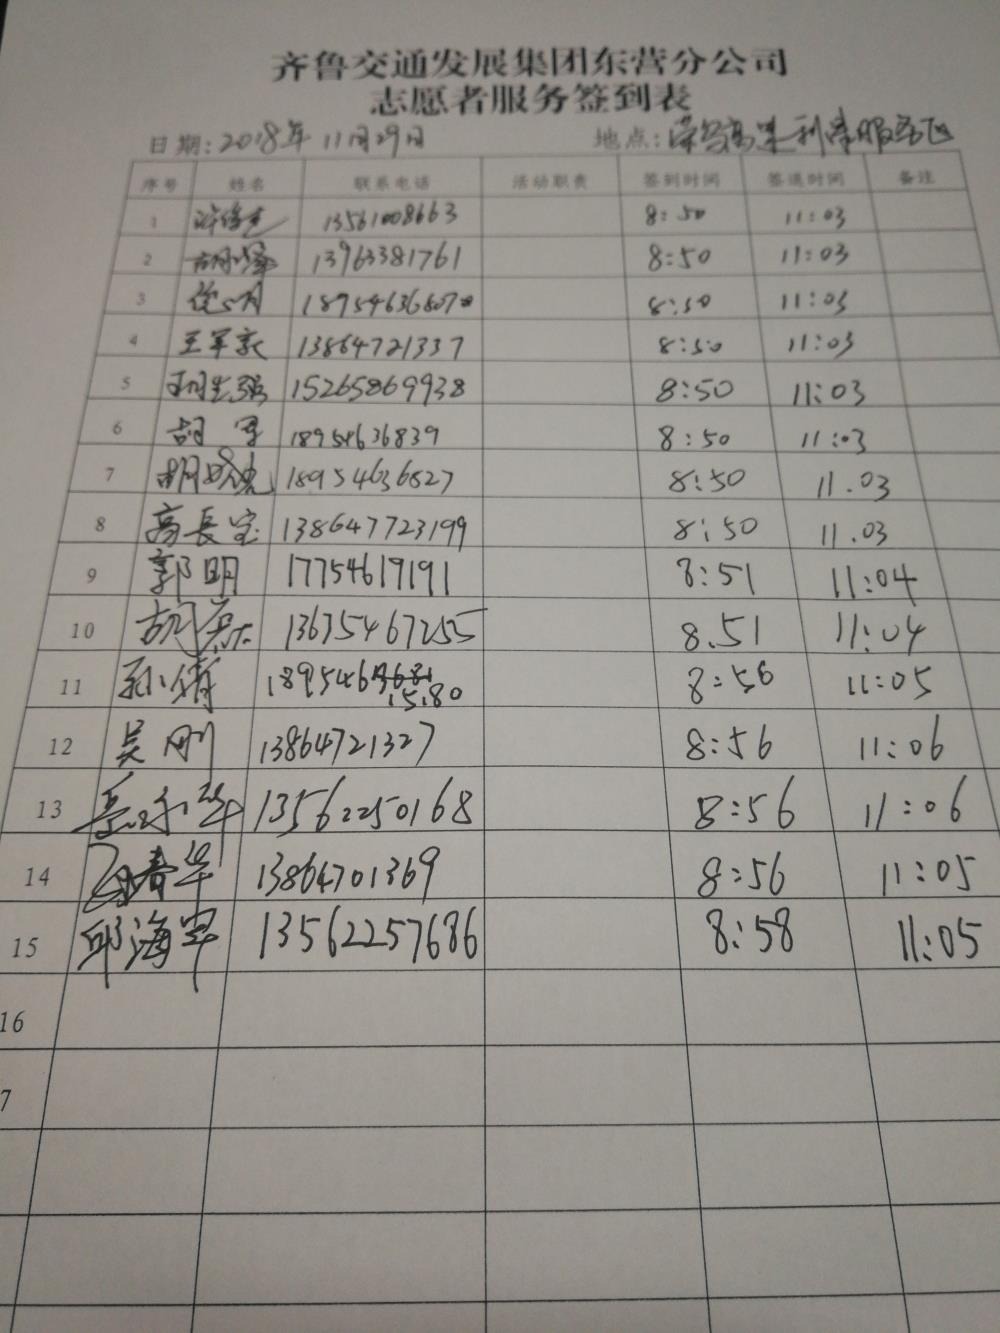 齐鲁交通发展集团东营分公司
志愿者服务签到表
日期:2018年11月29日 地点:荣乌高速利津服务区
序号 姓名 联系电话 活动职责 签到时间 签退时间 备注
1 13561008663 8:50 11:03
2 13963381761 8:50 11:03
3 18954636807 8:50 11:03
4 王军 13864721337 8:50 11:03
5 胡志强 15265869938 8:50 11:03
6 胡军 18954636839 8:50 11:03
7 胡晓 18954636827 8:50 11.03
8 高長宝 138647723199 8:50 11.03
9 郭明 17754619191 8:51 11:04
10 胡磊 13675467255 8.51 11:04
11 孙倩 18954615180 8:56 11:05
12 吴刚 13864721327 8:56 11:06
13 岳永华 13562250168 8:56 11:06
14 春华 13864701369 8:56 11:05
15 邱海军 13562257686 8:58 11:05
16
7